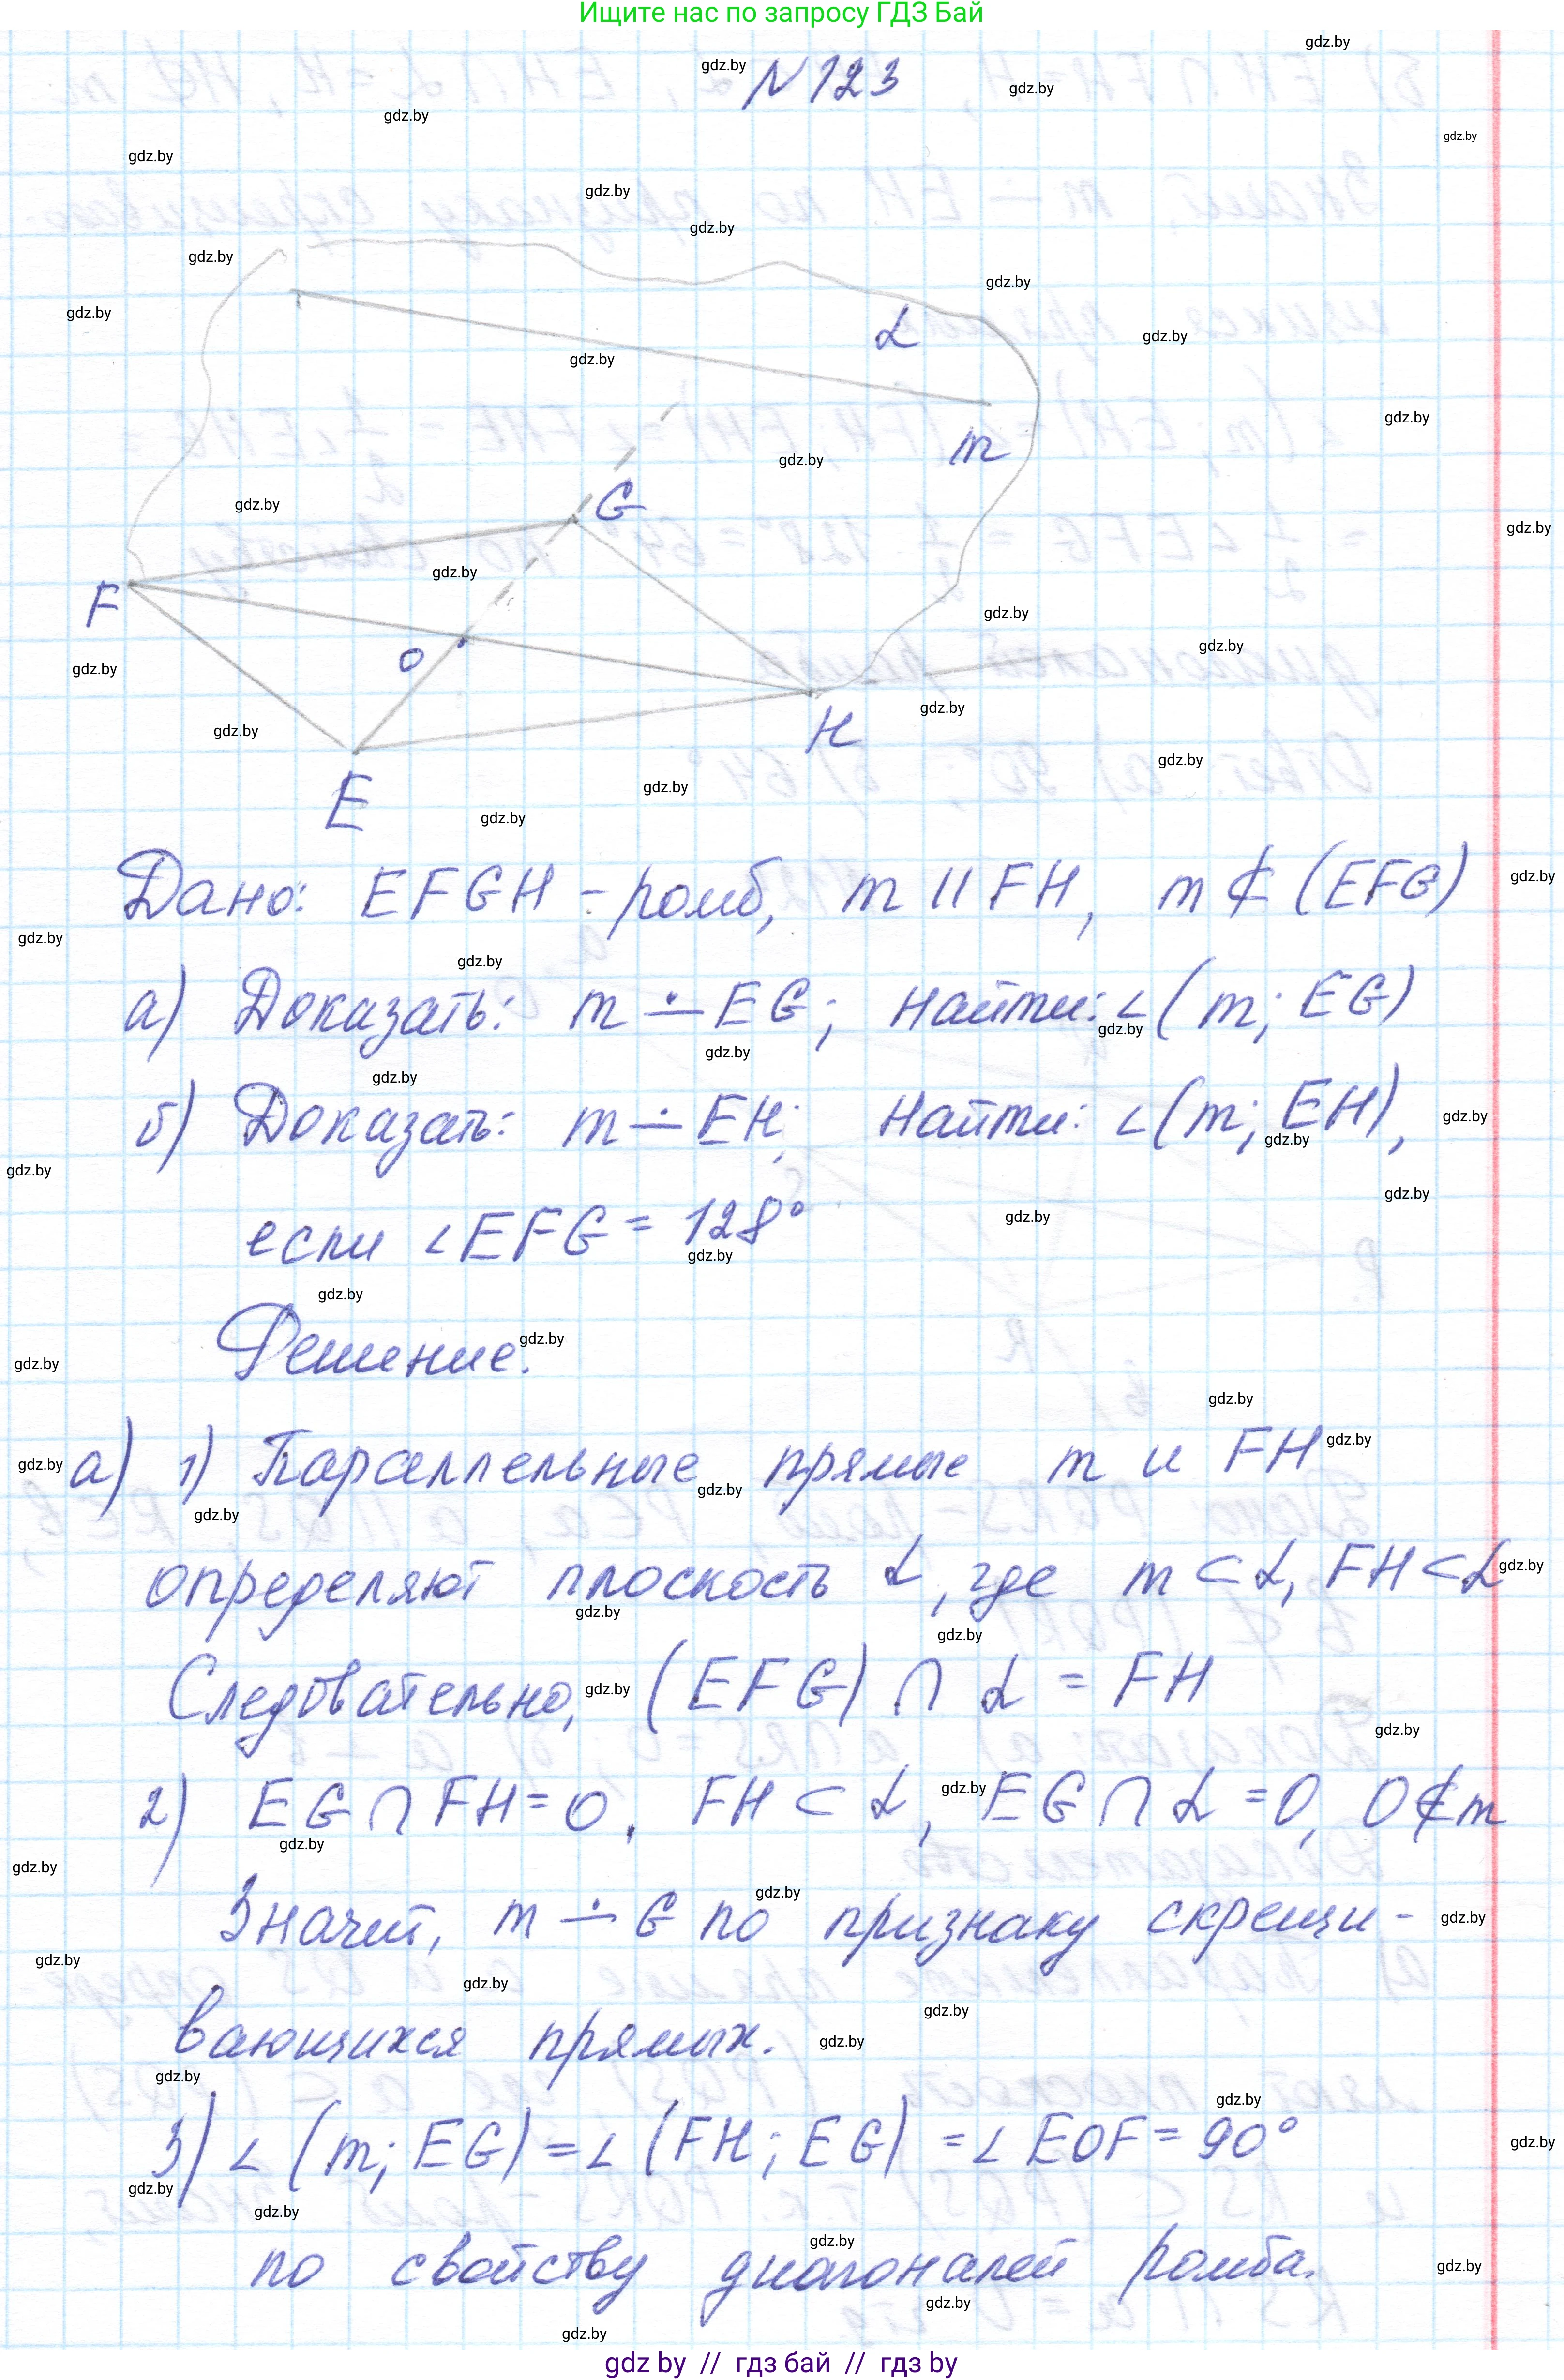 Ищите нас по запросу ГДЗ Бай
N 123
α
m
G
F
O
H
E
Дано: EFGH - ромб, m || FH, m ⊄ (EFG)
а) Доказать: m ∸ EG; Найти: ∠(m; EG)
б) Доказать: m ∸ EH; Найти: ∠(m; EH),
если ∠EFG = 128°
Решение.
а) 1) Параллельные прямые m и FH
определяют плоскость α, где m ⊂ α, FH ⊂ α
Следовательно, (EFG) ∩ α = FH
2) EG ∩ FH = O, FH ⊂ α, EG ∩ α = O, O ∉ m
Значит, m ∸ G по признаку скрещи-
вающихся прямых.
3) ∠(m; EG) = ∠(FH; EG) = ∠EOF = 90°
по свойству диагоналей ромба.
gdz by // гдз бай // гдз by